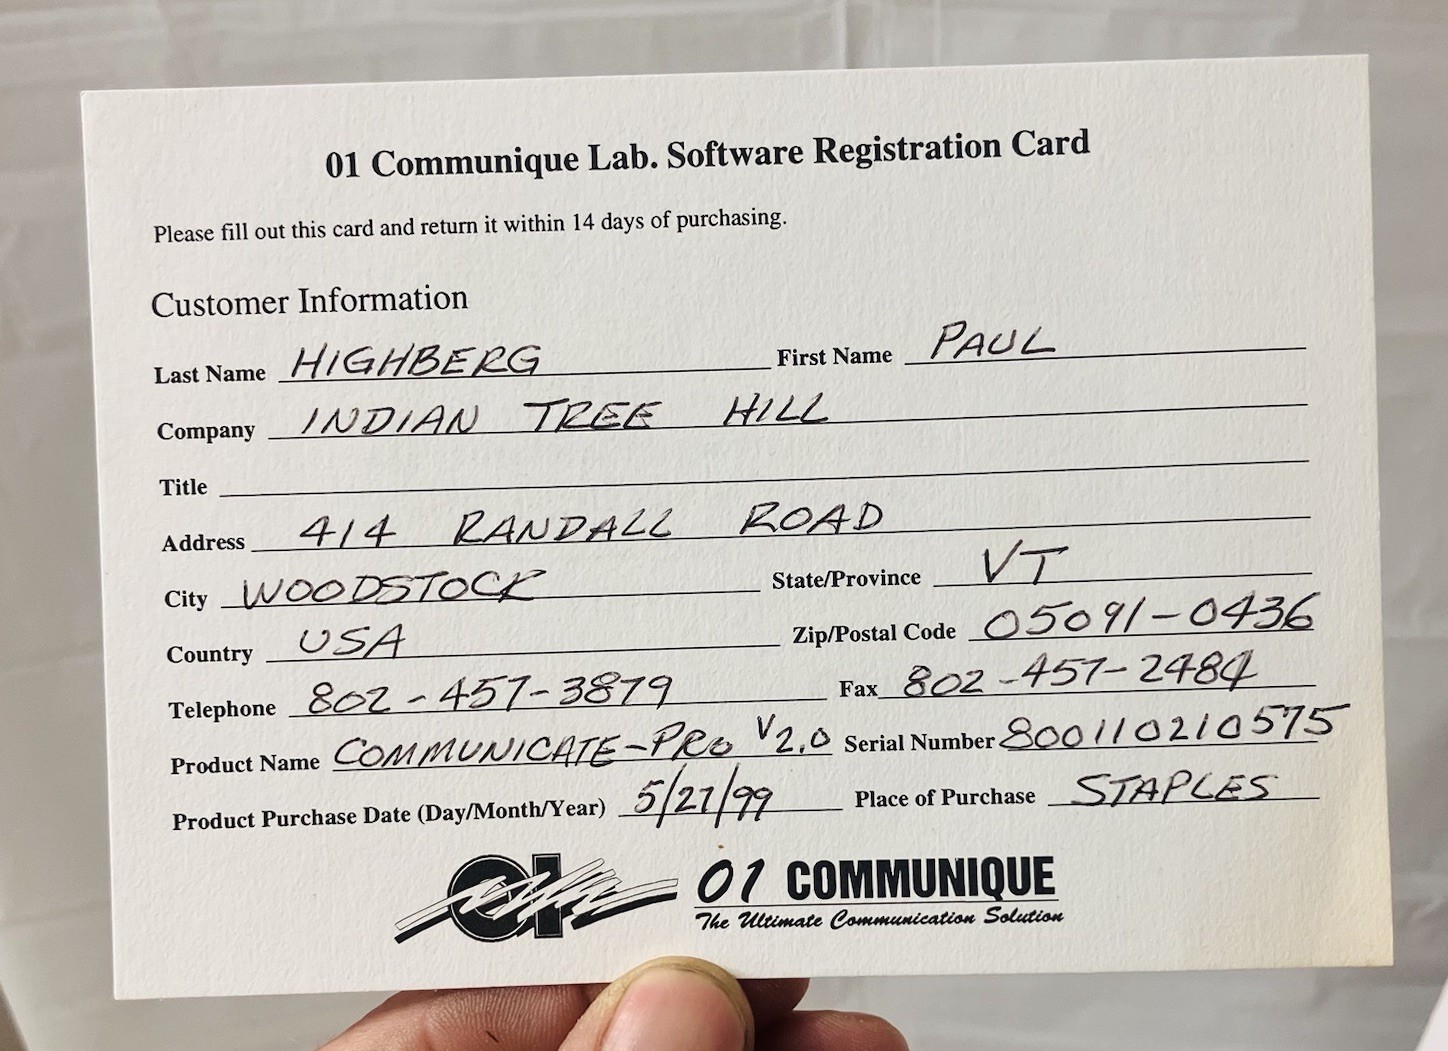 01 Communique Lab. Software Registration Card
Please fill out this card and return it within 14 days of purchasing.
Customer Information
Last Name HIGHBERG First Name PAUL
Company INDIAN TREE HILL
Title
Address 414 RANDALL ROAD
City WOODSTOCK State/Province VT
Country USA Zip/Postal Code 05091-0436
Telephone 802-457-3879 Fax 802-457-2484
Product Name COMMUNICATE-PRO V2.0 Serial Number 800110210575
Product Purchase Date (Day/Month/Year) 5/27/99 Place of Purchase STAPLES
01 01 COMMUNIQUE
The Ultimate Communication Solution